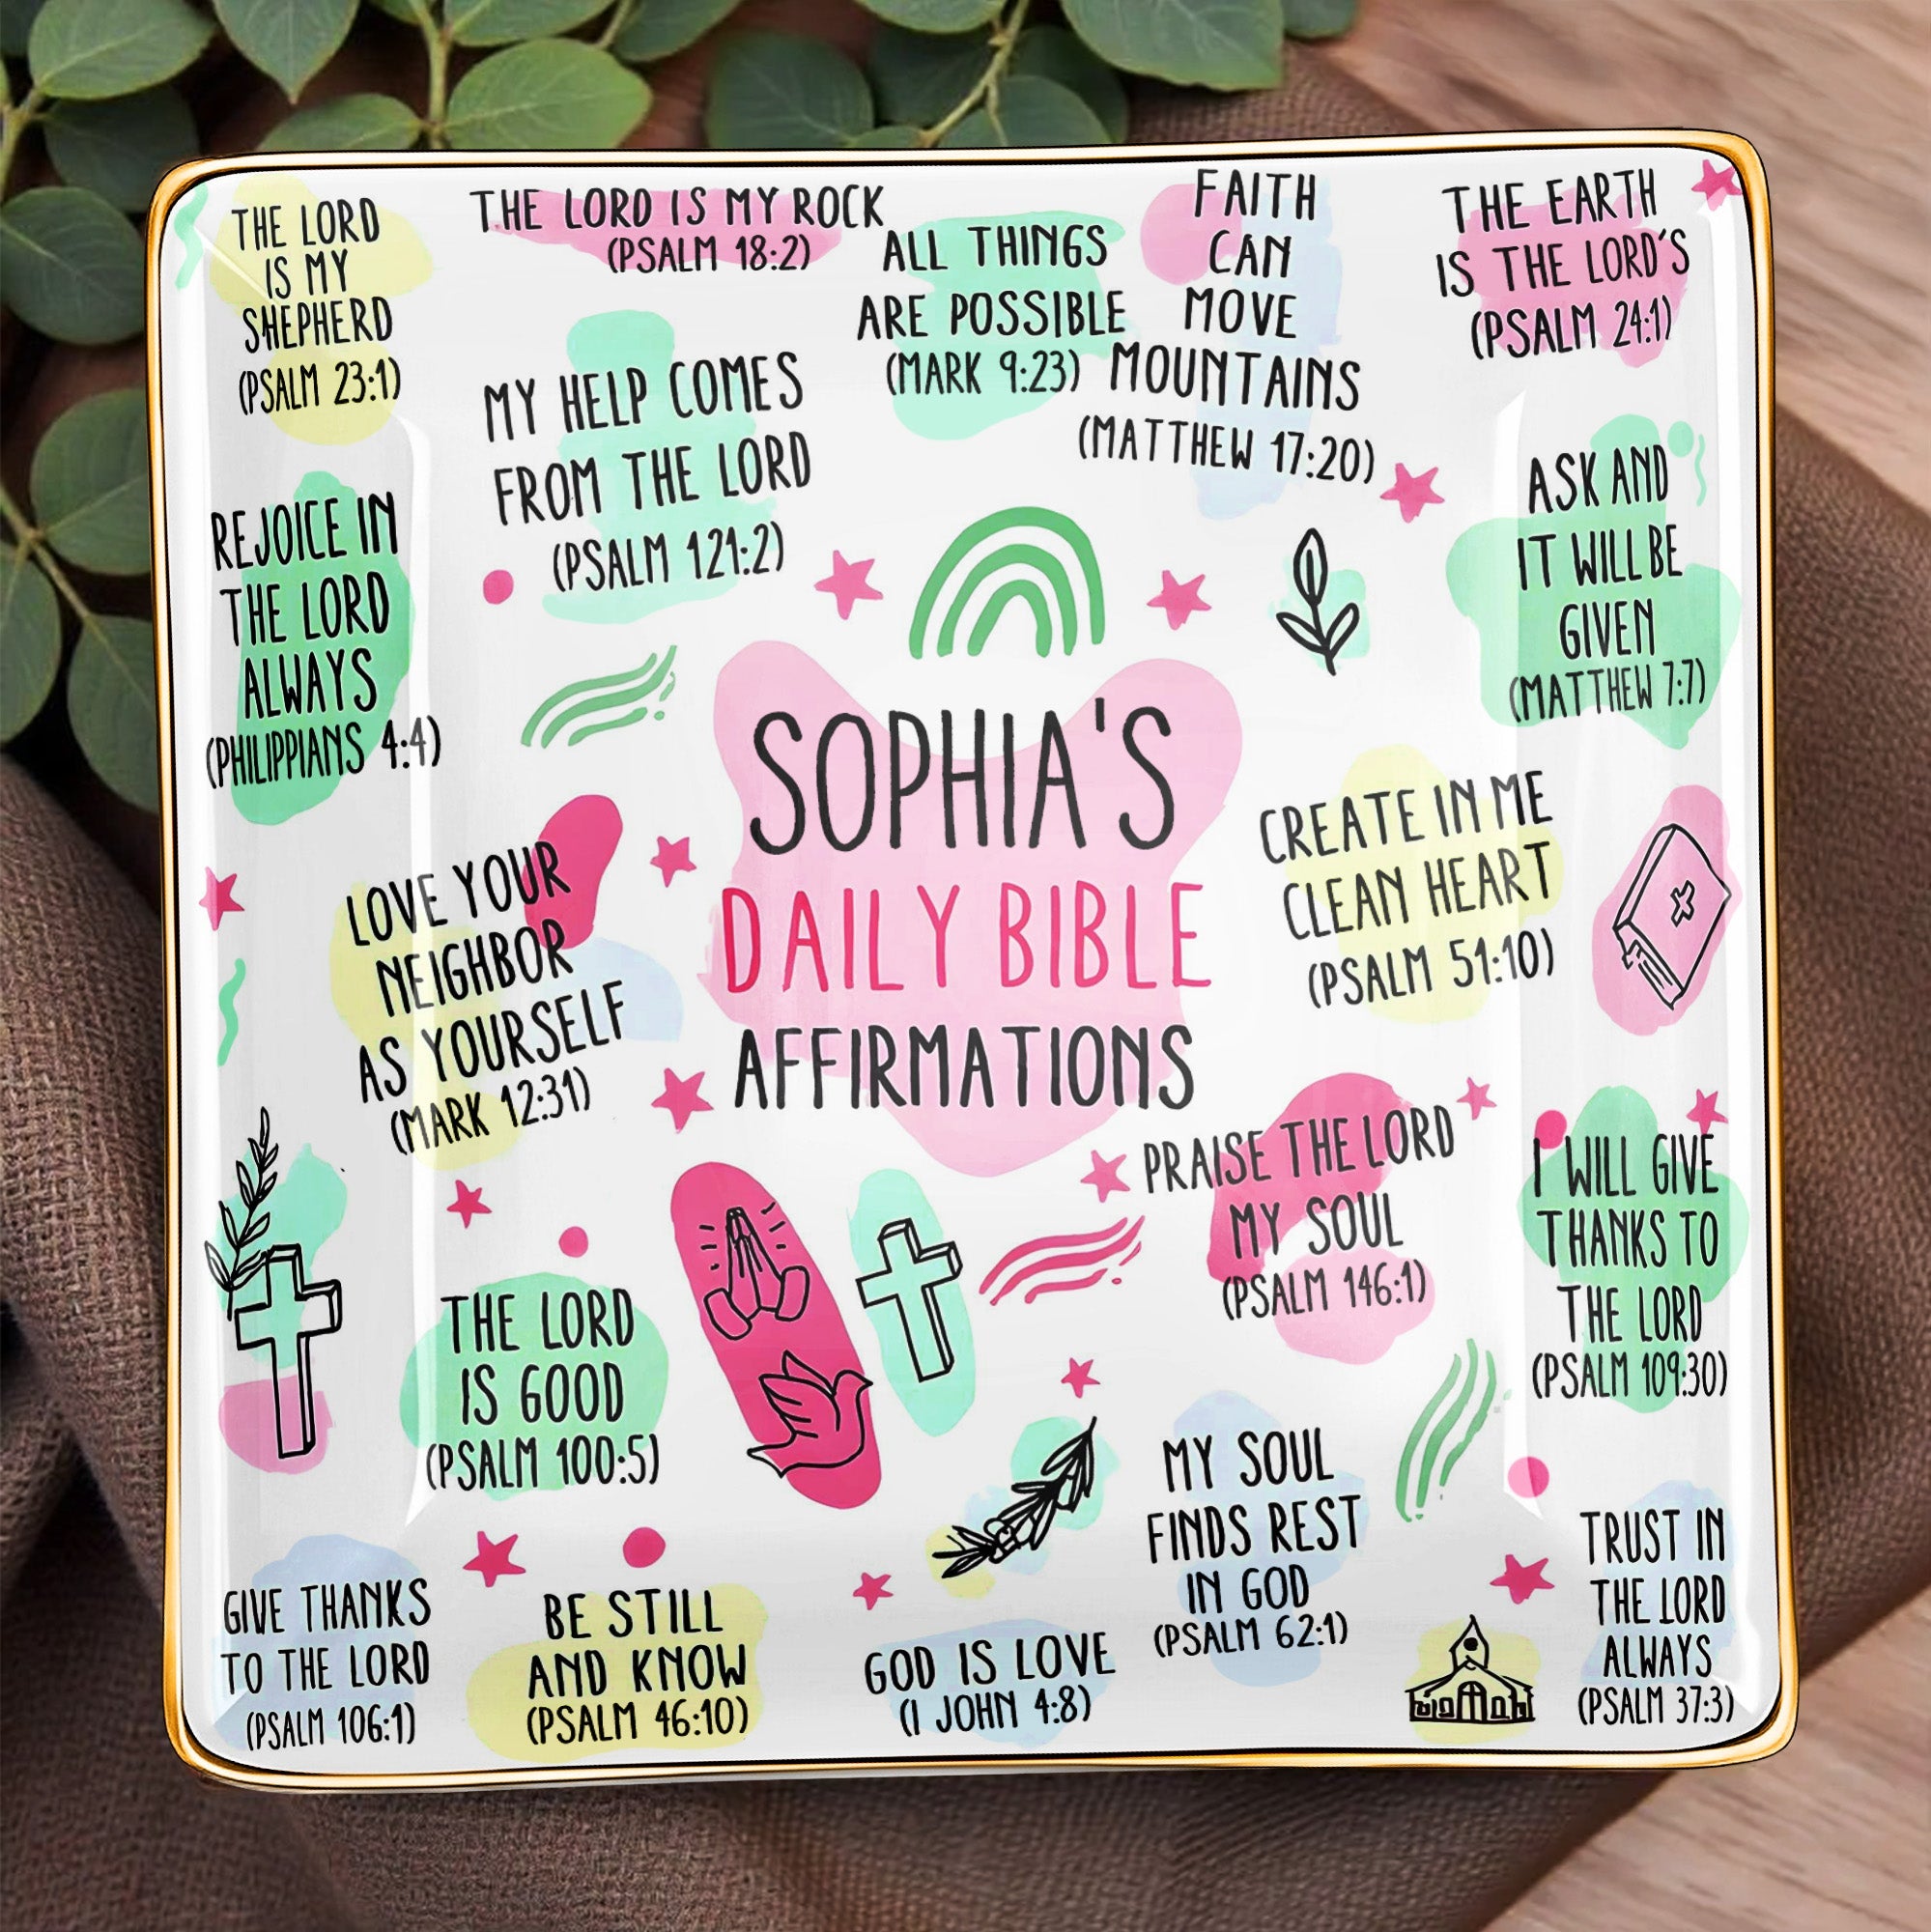 THE LORD
IS MY
SHEPHERD
(PSALM 23:1)
THE LORD IS MY ROCK
(PSALM 18:2)
ALL THINGS
ARE POSSIBLE
(MARK 9:23)
FAITH
CAN
MOVE
MOUNTAINS
(MATTHEW 17:20)
THE EARTH
IS THE LORD'S
(PSALM 24:1)
MY HELP COMES
FROM THE LORD
(PSALM 121:2)
REJOICE IN
THE LORD
ALWAYS
(PHILIPPIANS 4:4)
ASK AND
IT WILL BE
GIVEN
(MATTHEW 7:7)
SOPHIA'S
DAILY BIBLE
AFFIRMATIONS
LOVE YOUR
NEIGHBOR
AS YOURSELF
(MARK 12:31)
CREATE IN ME
CLEAN HEART
(PSALM 51:10)
PRAISE THE LORD
MY SOUL
(PSALM 146:1)
I WILL GIVE
THANKS TO
THE LORD
(PSALM 109:30)
THE LORD
IS GOOD
(PSALM 100:5)
MY SOUL
FINDS REST
IN GOD
(PSALM 62:1)
GIVE THANKS
TO THE LORD
(PSALM 106:1)
BE STILL
AND KNOW
(PSALM 46:10)
GOD IS LOVE
(1 JOHN 4:8)
TRUST IN
THE LORD
ALWAYS
(PSALM 37:3)